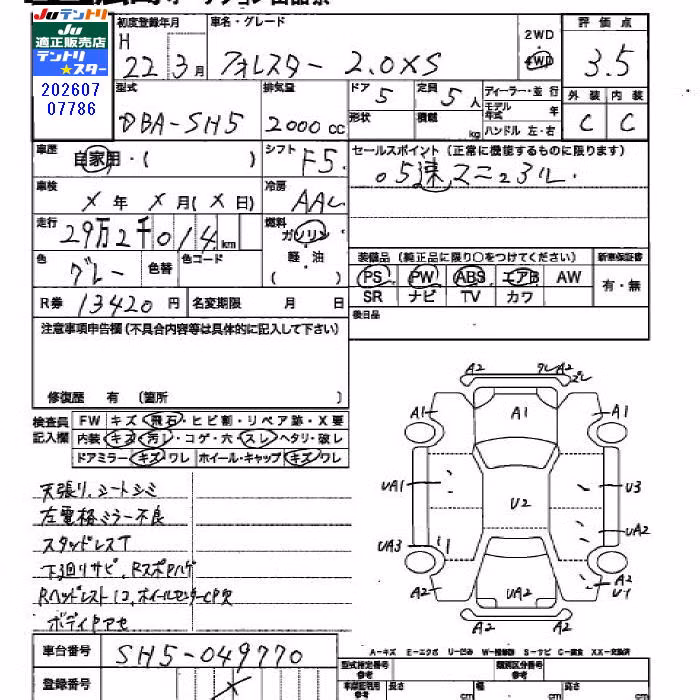 Juテントリ
Ju
適正販売店
テントリ
★スター
202607
07786
初度登録年月
H 22 3月
車名・グレード
フォレスター 2.0XS
2WD
4WD
評価点
3.5
型式
DBA-SH5
排気量
2000 cc
ドア 5
定員 5人
形状
積載 kg
ディーラー・並行
モデル年式 年
ハンドル 左・右
外装 C
内装 C
車歴
自家用・( )
シフト F5
セールスポイント (正常に機能するものに限ります)
。5速マニュアル.
車検
X年 X月(X日)
冷房
AAC
走行
29万2千014km
燃料
ガソリン
軽・油
( )
色
グレー
色替
色コード
装備品 (純正品に限り○をつけてください)
PS PW ABS エアB AW
SR ナビ TV カワ
新車保証書
有・無
R券 13420円
名変期限 月 日
後日品
注意事項申告欄 (不具合内容等は具体的に記入して下さい)
修復歴 有 (箇所 )
検査員記入欄
FW キズ・飛石・ヒビ割・リペア跡・X要
内装・キズ・汚レ・コゲ・穴・スレ・ヘタリ・破レ
ドアミラー キズ ワレ ホイール・キャップ キズ ワレ
天張り、シートシミ
左電格ミラー不良
スタッドレスT
下廻リサビ、RスポPハゲ
Rヘッドレスト12、ホイールセンターCP欠
ボディPアセ
A2 ワレ A2
A1 A1 A1
UA1 U2 U3
UA2
UA3
A2 UA2 U1
A2
A2 A2
A-キズ E-エクボ U-凹み W-補修跡 S-サビ C-腐食 XX-交換済
車台番号
SH5-049770
登録番号
型式指定番号
参考
類別区分番号
参考
車庫証明用
参考
長さ cm
幅 cm
高さ cm